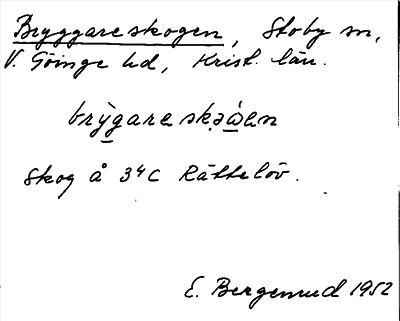 Bryggareskogen, Stoby sn,
V. Göinge hd, Krist. län.
Skog å 3⁴C Rättelöv.
E. Bergenrud 1952